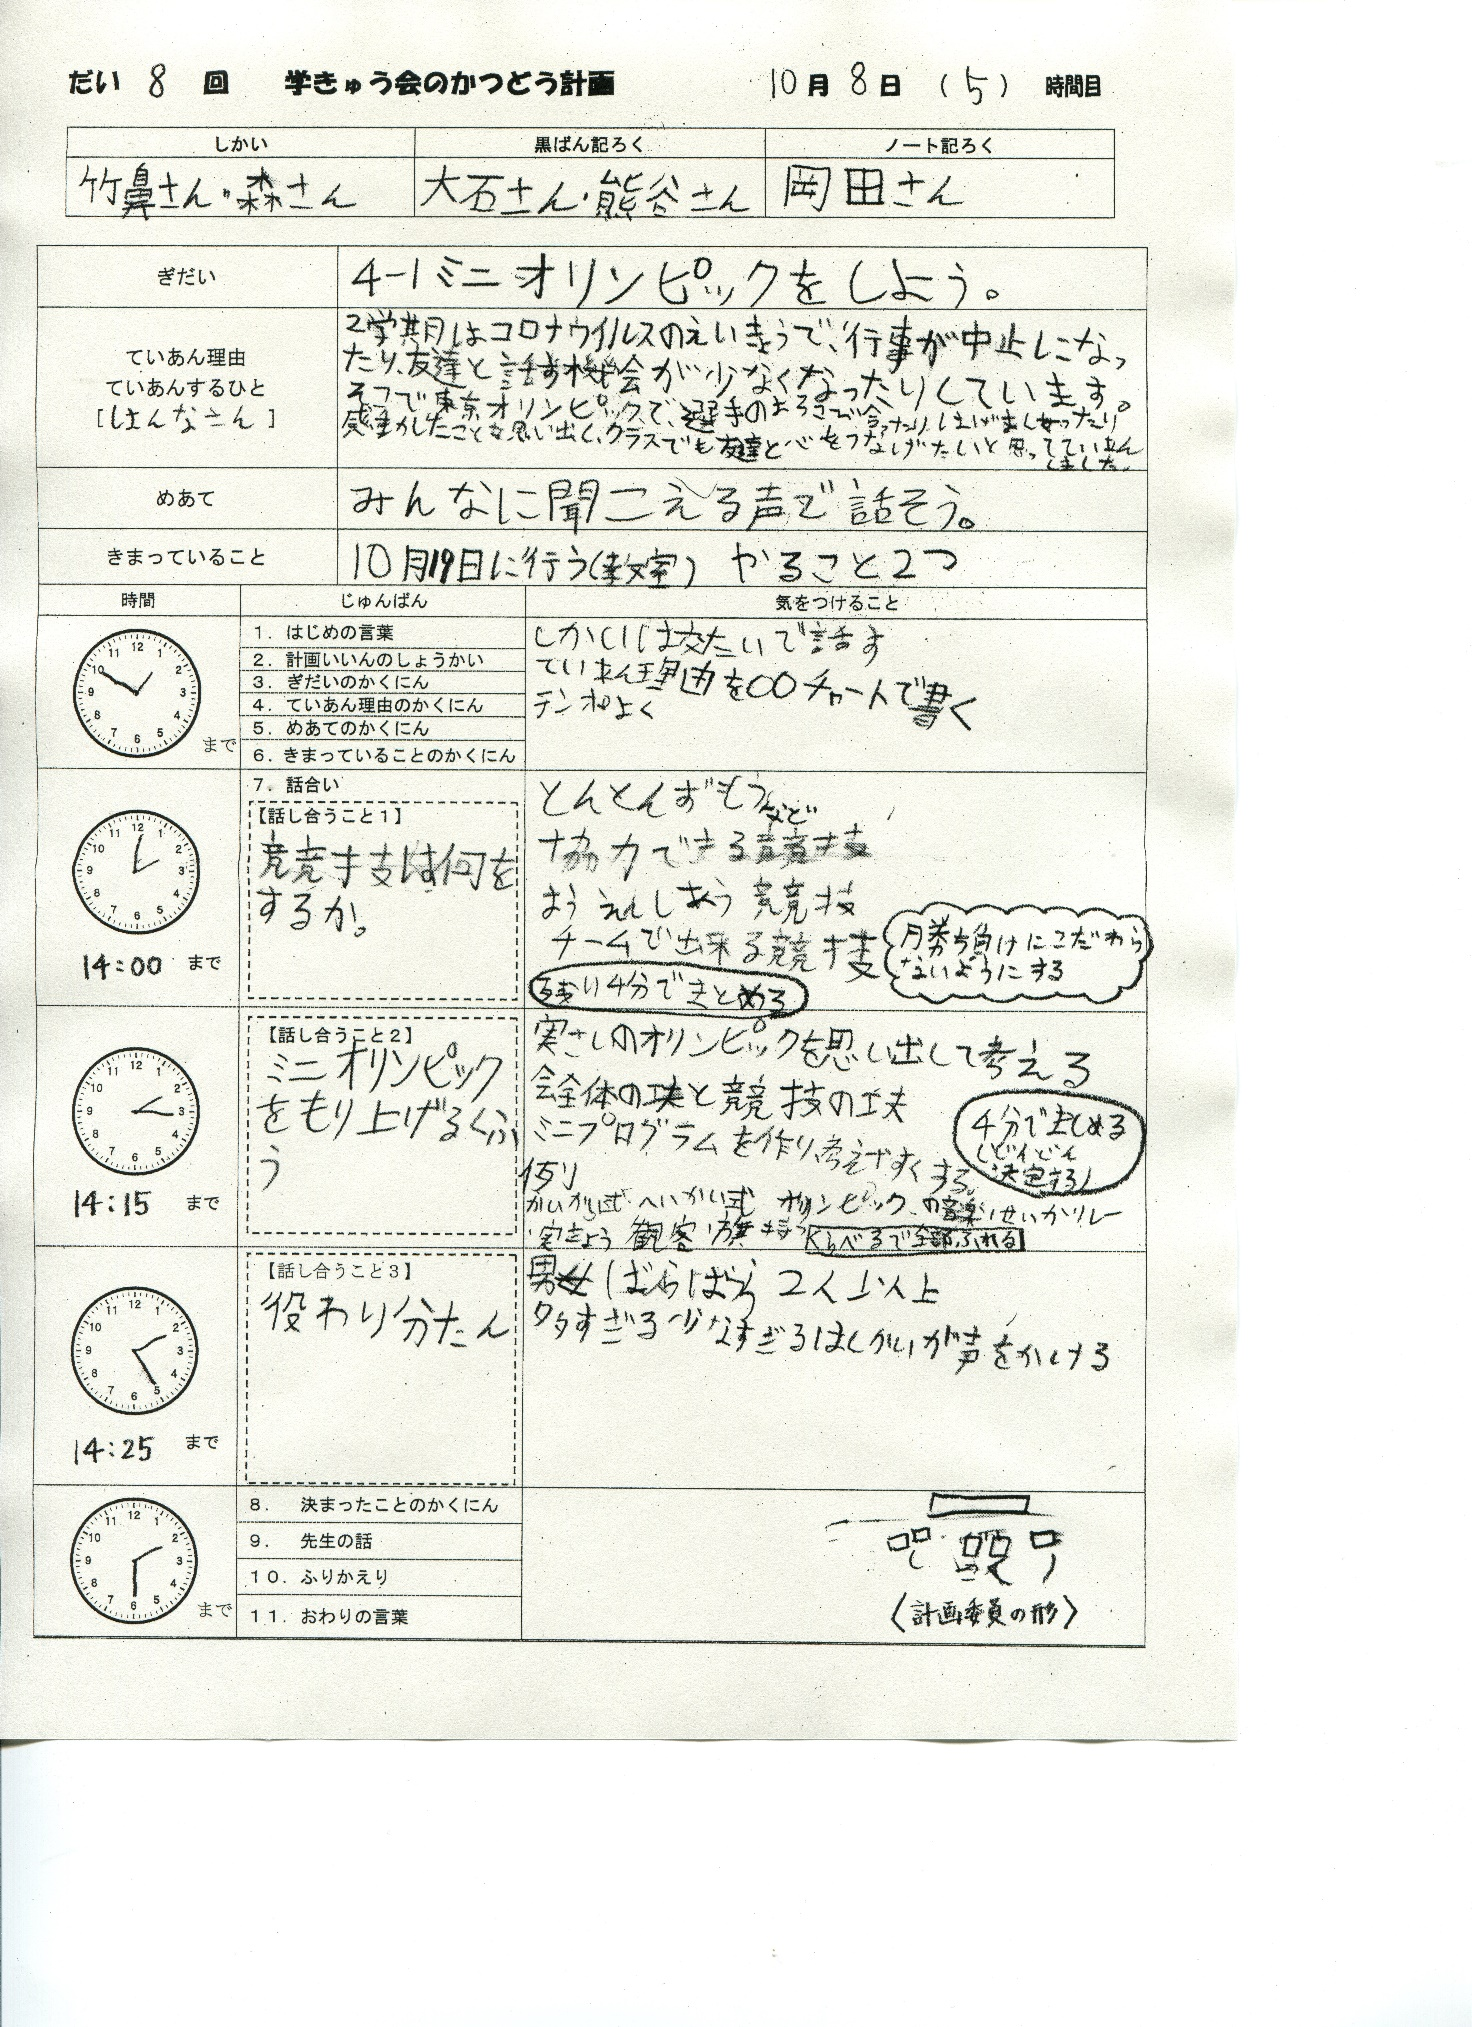 だい 8 回 学きゅう会のかつどう計画 10月8日 (5) 時間目
しかい 黒ばん記ろく ノート記ろく
竹鼻さん・森さん 大石さん・熊谷さん 岡田さん
ぎだい 4-1ミニオリンピックをしよう。
ていあん理由
ていあんするひと
[はんなさん]
2学期はコロナウイルスのえいきょうで、行事が中止になっ
たり、友達と話す機会が少なくなったりしています。
そこで東京オリンピックで、選手の
感動したことを思い出し、クラスでも友達と心をつなげたいと思ってていあん
しました。
めあて みんなに聞こえる声で話そう。
きまっていること 10月19日に行う(教室) やること2つ
時間 じゅんばん 気をつけること
12 1 2 3 4 5 6 7 8 9 10 11
まで
1. はじめの言葉
2. 計画いいんのしょうかい
3. ぎだいのかくにん
4. ていあん理由のかくにん
5. めあてのかくにん
6. きまっていることのかくにん
しかいは交たいで話す
ていあん理由を〇〇チャートで書く
テンポよく
12 1 2 3 4 5 6 7 8 9 10 11
14:00 まで
7. 話合い
【話し合うこと1】
競技は何を
するか。
とんとんずもうなど
協力できる競技
おうえんしあう競技
チームで出来る競技
残り4分でまとめる
勝ち負けにこだわら
ないようにする
12 1 2 3 4 5 6 7 8 9 10 11
14:15 まで
【話し合うこと2】
ミニオリンピック
をもり上げるくふ
う
実さいのオリンピックを思い出して考える
全体の工夫と競技の工夫
ミニプログラムを作り、考えやすくする。
4分でまとめる
(どんどん
決定する)
例り
かいかい式 へいかい式 オリンピックの音楽 せいかリレー
実きょう 観客 旗
くらべるで全部ふれる
12 1 2 3 4 5 6 7 8 9 10 11
14:25 まで
【話し合うこと3】
役わり分たん
男女ばらばら 2人以上
多すぎる少なすぎるはしかいが声をかける
12 1 2 3 4 5 6 7 8 9 10 11
まで
8. 決まったことのかくにん
9. 先生の話
10. ふりかえり
11. おわりの言葉
〈計画委員の形〉